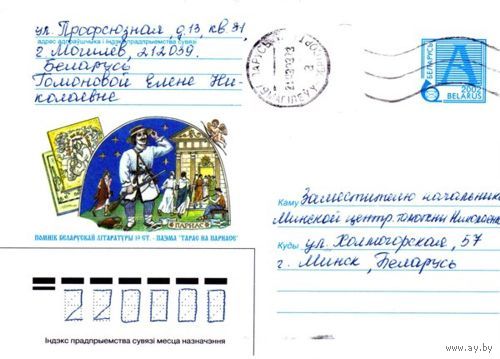 ул. Профсоюзная, д.13, кв.31,
адрас адпраўшчыка і індэкс прадпрыемства сувязі
г Могилев, 212039.
Беларусь
Гомоновой Елене Ни-
колаевне
БЕЛАРУСЬ
А
2002
BELARUS
ПАРНАС
ПОМНІК БЕЛАРУСКАЙ ЛІТАРАТУРЫ 19 СТ. - ПАЭМА "ТАРАС НА ПАРНАСЕ"
Каму Заместителю начальника
Минской центр. таможни
Куды ул. Холмогорская, 57
г. Минск, Беларусь
220000
Індэкс прадпрыемства сувязі месца назначэння
www.ay.by